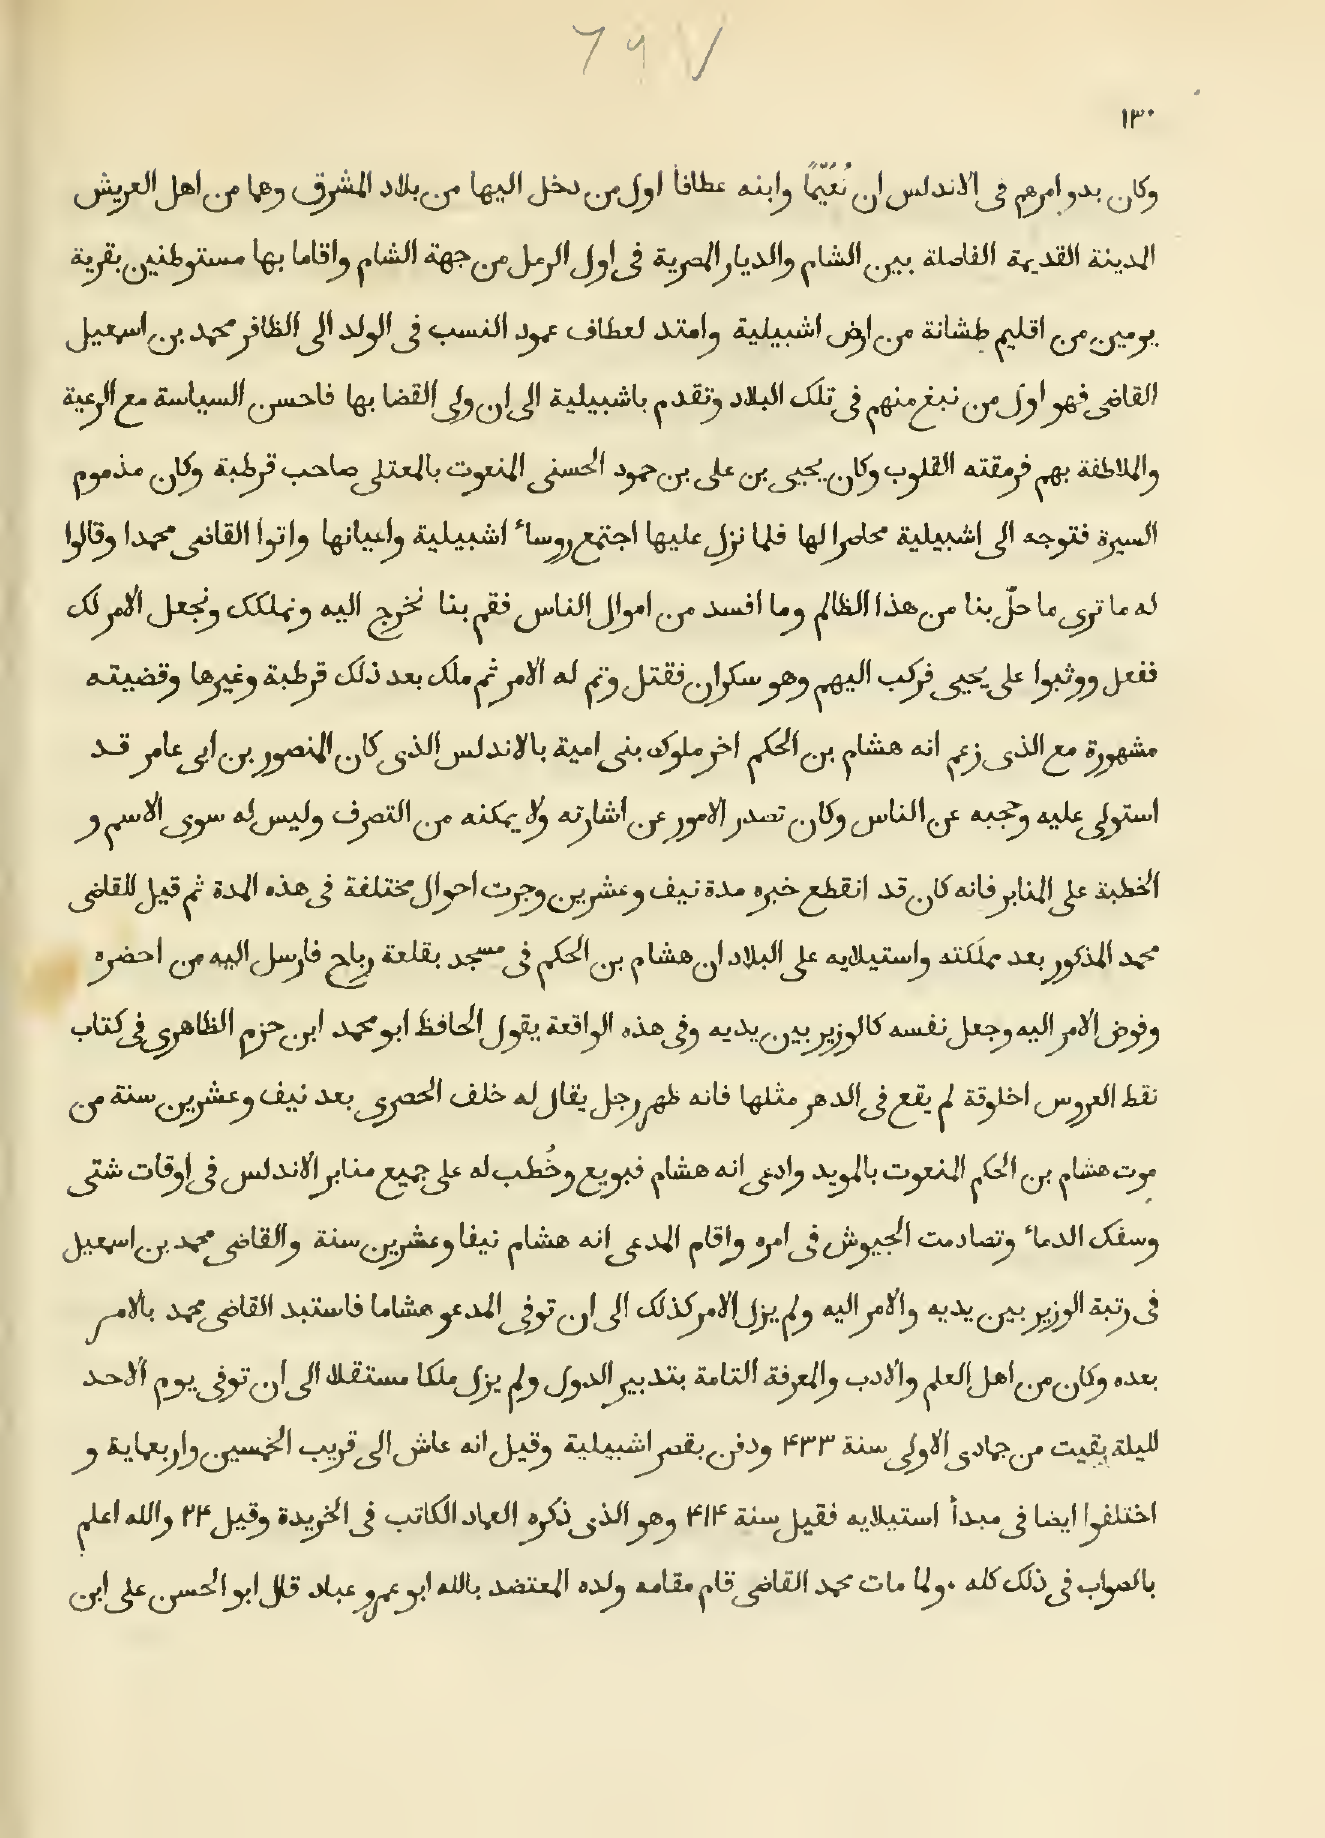 ٦٩٧
١٣٠
وكان بدو امرهم فى الاندلس ان نُعَيّمًا وابنه عطافا اول من دخل اليها من بلاد المشرق وهما من اهل العريش
المدينة القديمة الفاصلة بين الشام والديار المصرية فى اول الرمل من جهة الشام واقاما بها مستوطنين بقرية
يومين من اقليم طشانة من ارض اشبيلية وامتد لعطاف عمود النسب فى الولد الى الظافر محمد بن اسمعيل
القاضى فهو اول من نبغ منهم فى تلك البلاد وتقدم باشبيلية الى ان ولى القضا بها فاحسن السياسة مع الرعية
والملاطفة بهم فرمقته القلوب وكان يحيى بن على بن حمود الحسنى المنعوت بالمعتلى صاحب قرطبة وكان مذموم
السيرة فتوجه الى اشبيلية محاصرا لها فلما نزل عليها اجتمع روساء اشبيلية واعيانها واتوا القاضى محمدا وقالوا
له ما ترى ما حلّ بنا من هذا الظالم وما افسد من اموال الناس فقم بنا نخرج اليه ونملكك ونجعل الامر لك
ففعل ووثبوا على يحيى فركب اليهم وهو سكران فقتل وتم له الامر ثم ملك بعد ذلك قرطبة وغيرها وقضيته
مشهورة مع الذى زعم انه هشام بن الحكم اخر ملوك بنى امية بالاندلس الذى كان المنصور بن ابى عامر قد
استولى عليه وحجبه عن الناس وكان تصدر الامور عن اشارته ولا يمكنه من التصرف وليس له سوى الاسم و
الخطبة على المنابر فانه كان قد انقطع خبره مدة نيف وعشرين وجرت احوال مختلفة فى هذه المدة ثم قيل للقاضى
محمد المذكور بعد مملكته واستيلايه على البلاد ان هشام بن الحكم فى مسجد بقلعة رباح فارسل اليه من احضره
وفوض الامر اليه وجعل نفسه كالوزير بين يديه وفى هذه الواقعة يقول الحافظ ابو محمد ابن حزم الظاهرى فى كتاب
نقط العروس اخلوقة لم يقع فى الدهر مثلها فانه ظهر رجل يقال له خلف الحصرى بعد نيف وعشرين سنة من
موت هشام بن الحكم المنعوت بالمويد وادعى انه هشام فبويع وخُطب له على جميع منابر الاندلس فى اوقات شتى
وسفك الدماء وتصادمت الجيوش فى امره واقام المدعى انه هشام نيفا وعشرين سنة والقاضى محمد بن اسمعيل
فى رتبة الوزير بين يديه والامر اليه ولم يزل الامر كذلك الى ان توفى المدعو هشاما فاستبد القاضى محمد بالامر
بعده وكان من اهل العلم والادب والمعرفة التامة بتدبير الدول ولم يزل ملكا مستقلا الى ان توفى يوم الاحد
لليلة بقيت من جمادى الاولى سنة ۴۳۳ ودفن بقصر اشبيلية وقيل انه عاش الى قريب الخمسين واربعماية و
اختلفوا ايضا فى مبدأ استيلايه فقيل سنة ۴۱۴ وهو الذى ذكره العماد الكاتب فى الخريدة وقيل ۲۴ والله اعلم
بالصواب فى ذلك كله ٠ ولما مات محمد القاضى قام مقامه ولده المعتضد بالله ابو عمرو عباد قال ابو الحسن على ابن